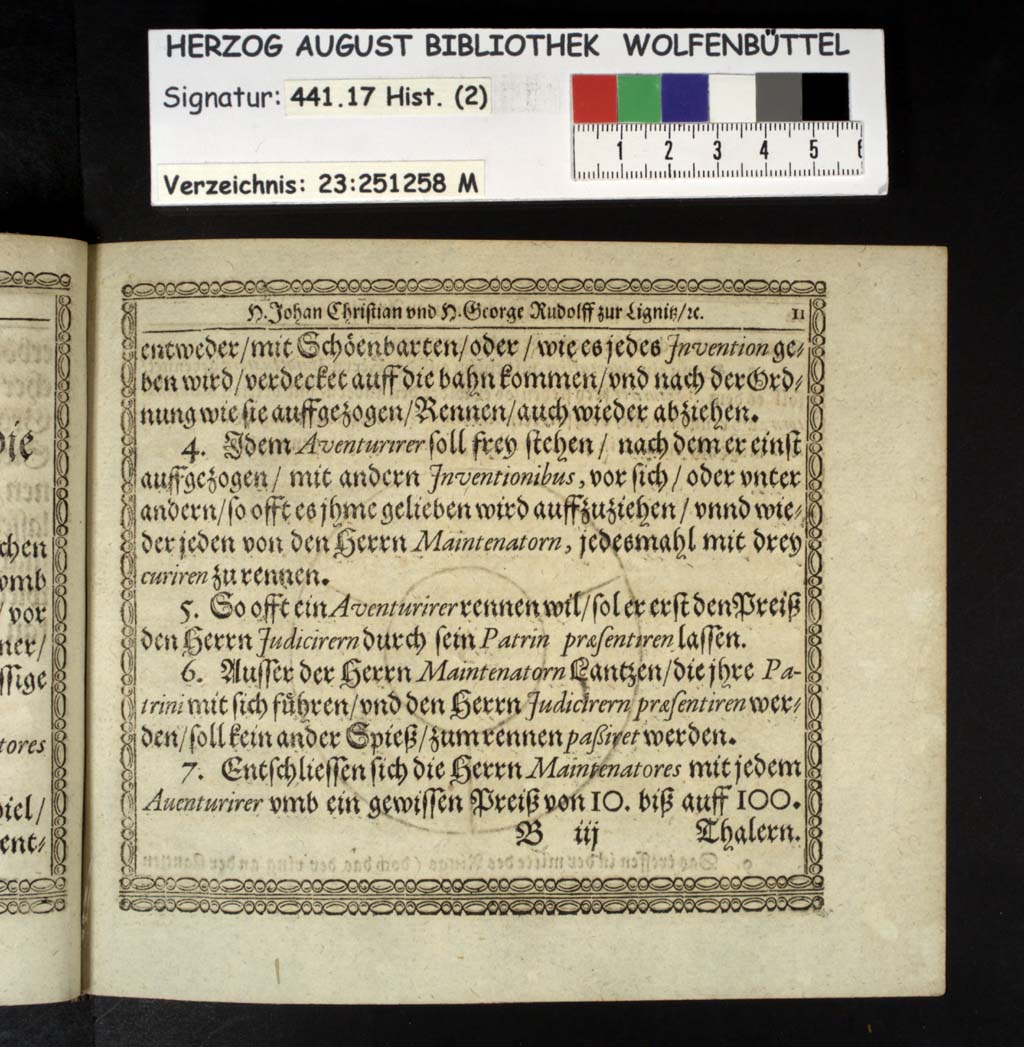 HERZOG AUGUST BIBLIOTHEK WOLFENBÜTTEL
Signatur: 441.17 Hist. (2)
1 2 3 4 5 6
Verzeichnis: 23:251258 M
die
chen
vmb
/ vor
ner/
ssige
tores
iel/
ent⸗
H. Johan Christian vnd H. George Rudolff zur Lignitz/ꝛc. 11
entweder/mit Schöenbarten/oder / wie es jedes Jnvention ge⸗
ben wird/verdecket auff die bahn kommen/vnd nach der Ord⸗
nung wie sie auffgezogen/Rennen/auch wieder abziehen.
4. Jdem Aventurirer soll frey stehen / nach dem er einst
auffgezogen/ mit andern Jnventionibus, vor sich / oder vnter
andern/so offt es jhme gelieben wird auffzuziehen / vnnd wie⸗
der jeden von den Herrn Maintenatorn, jedesmahl mit drey
curiren zu rennen.
5. So offt ein Aventurirer rennen wil/sol er erst den Preiß
den Herrn Judicirern durch sein Patrin præsentiren lassen.
6. Ausser der Herrn Maintenatorn Lantzen/die jhre Pa-
trini mit sich führen/vnd den Herrn Judicirern præsentiren wer⸗
den/soll kein ander Spieß/zum rennen paßiret werden.
7. Entschliessen sich die Herrn Maintenatores mit jedem
Auenturirer vmb ein gewissen Preiß von 10. biß auff 100.
B iij Thalern.